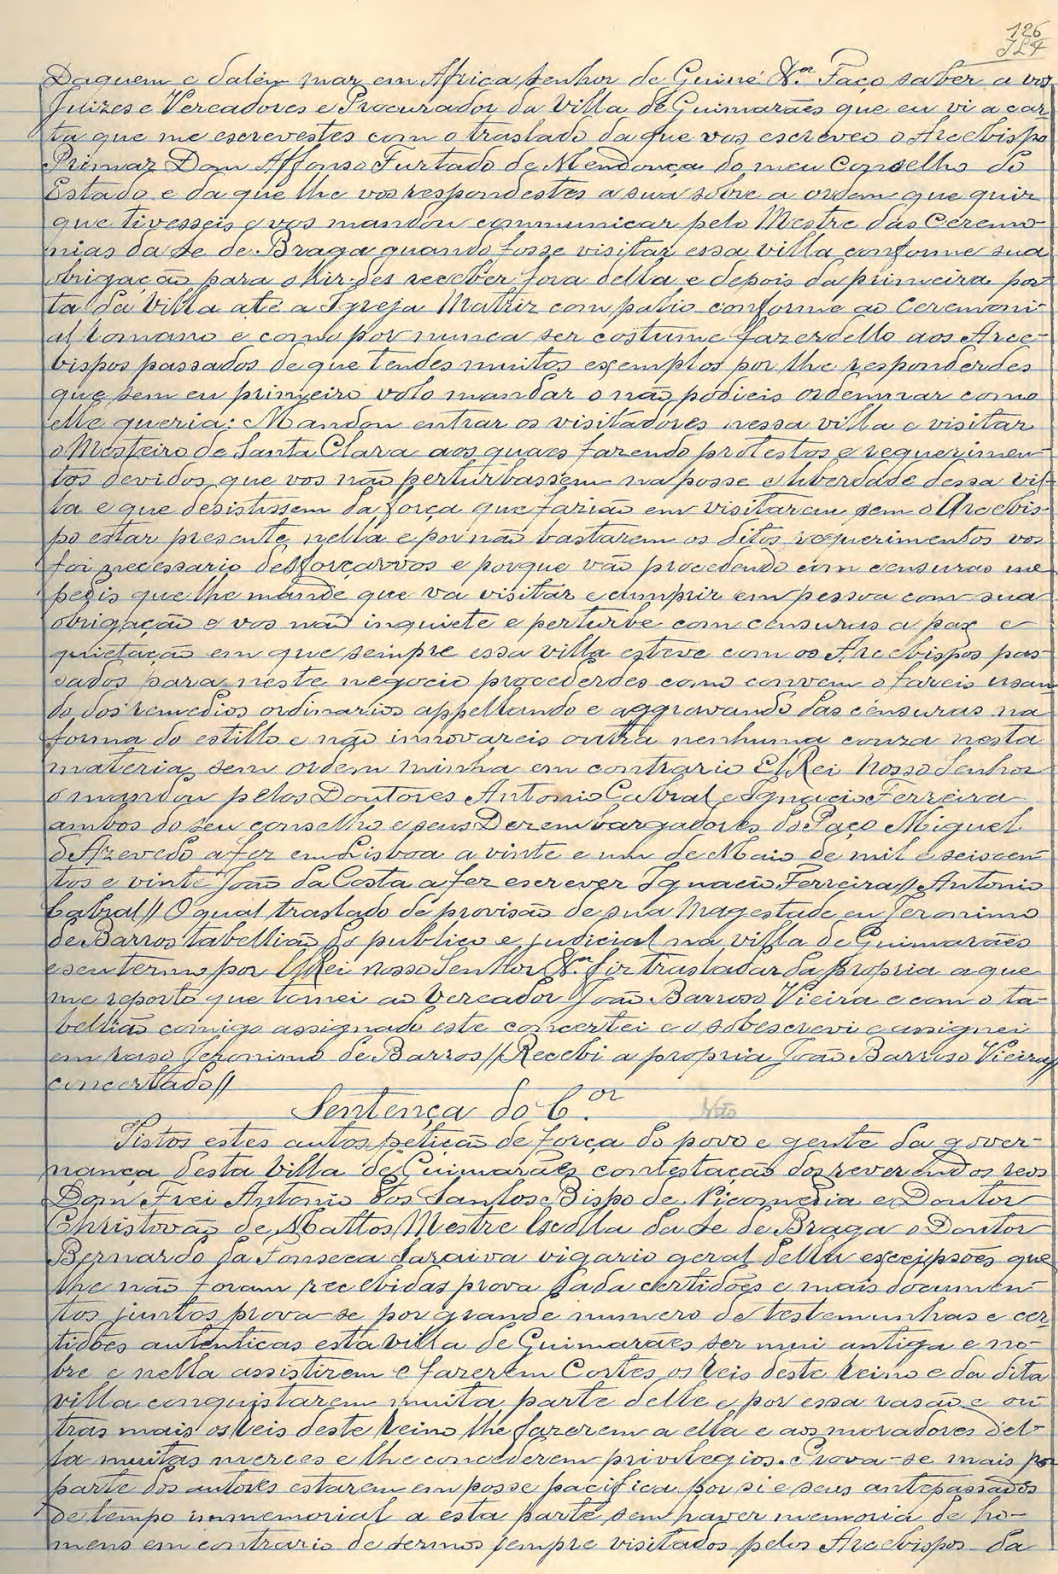 126
Daquem e dalém mar em Africa Senhor de Guiné &.ª Faço saber a vos
Juizes e Vereadores e Procurador da Villa de Guimarães que eu vi a car-
ta que me escrevestes com o traslado da que vos escreveo o Arcebispo
Primaz Dom Affonso Furtado de Mendonça do meu Conselho do
Estado e da que lhe vos respondestes a sua sobre a ordem que quiz
que tivesseis e vos mandou communicar pelo Mestre das Ceremo-
nias da Se de Braga quando fosse visitar essa villa conforme sua
obrigação para o hir-des receber fora della e depois da primeira por-
ta da Villa até a Igreja Matriz com palio conforme ao Ceremoni-
al Romano e como por nunca ser costume fazerdello aos Arce-
bispos passados de que tendes muitos exemplos por lhe responderdes
que sem eu primeiro volo mandar o não podieis ordennar como
elle queria; Mandou entrar os visitadores nessa villa e visitar
o Mosteiro de Santa Clara aos quaes fazendo protestos e requerimen-
tos devidos que vos não perturbassem na posse e liberdade dessa vil-
la e que desistissem da força que farião em visitarem sem o Arcebis-
po estar presente nella e por não bastarem os ditos requerimentos vos
foi necessario desforçarvos e porque vão procedendo com censuras me
pedis que lhe mande que va visitar e cumprir em pessoa com sua
obrigação e vos não inquiete e perturbe com censuras a paz e
quietação em que sempre essa villa esteve com os Arcebispos pas-
sados para neste negocio procederdes como convem o fareis usan-
do dos remedios ordinarios appellando e aggravando das censuras na
forma do estillo e não innovareis outra nenhuma couza nesta
materia sem ordem minha em contrario ElRei Nosso Senhor
o mandou pelos Doutores Antonio Cabral e Ignacio Ferreira
ambos do seu conselho e seus Dezembargadores do Paço Miguel
d'Azevedo a fez em Lisboa a vinte e um de Maio de mil e seiscen-
tos e vinte João da Costa a fez escrever Ignacio Ferreira // Antonio
Cabral // O qual traslado de provisão de sua Magestade eu Jeronimo
de Barros tabellião do publico e judicial na villa de Guimarães
e seu termo por ElRei nosso Senhor &.ª fiz trasladar da propria a que
me reporto que tornei ao Vereador João Barroso Vieira e com o ta-
bellião comigo assignado este concertei e o sobescrevi e assignei
em raso Jeronimo de Barros // Recebi a propria João Barroso Vieira //
concertado //
Sentença do C.or
Vistos estes autos petição de força do povo e gente da gover-
nança desta Villa de Guimarães contestação dos reverendos reos
Dom Frei Antonio dos Santos Bispo de Nicomedia e Doutor
Christovão de Mattos Mestre Escolla da Se de Braga o Doutor
Bernardo da Fonseca Saraiva vigario geral della exceipsões que
lhe não foram recebidas prova dada certidões e mais documen-
tos juntos prova-se por grande numero de testemunhas e cer-
tidões autenticas esta villa de Guimarães ser mui antiga e no-
bre e nella assistirem e fazerem Cortes os Reis deste Reino e da dita
villa conquistarem muita parte delle e por essa rasão e ou-
tras mais os Reis deste Reino lhe fazerem a ella e aos moradores del-
la muitas merces e lhe concederem privilegios. Prova-se mais por
parte dos autores estarem em posse pacifica por si e seus antepassados
de tempo immemorial a esta parte sem haver memoria de ho-
mens em contrario de sermos sempre visitados pelos Arcebispos da